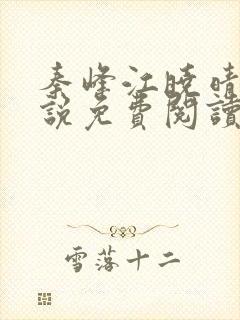 秦峰江曉晴
說免費閱讀
雪落十二